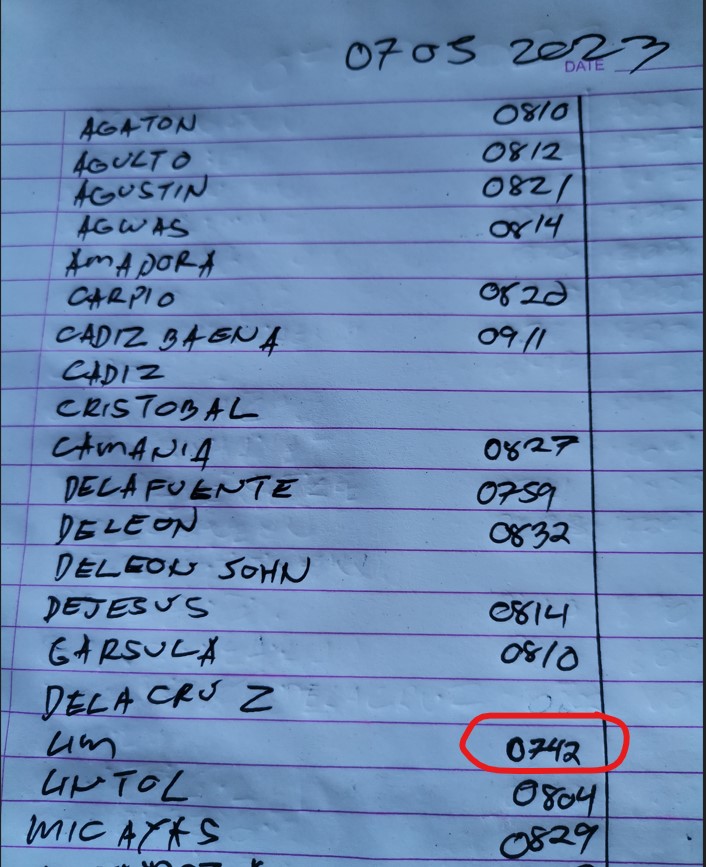 07 05 2023
DATE
AGATON 0810
AGULTO 0812
AGUSTIN 0821
AGWAS 0814
AMADORA
CARPIO 0820
CADIZ BAENA 0911
CADIZ
CRISTOBAL
CAMANIA 0827
DELAFUENTE 0759
DELEON 0832
DELEON JOHN
DEJESUS 0814
GARSULA 0810
DELA CRUZ
LIM 0742
LINTOL 0804
MICAYAS 0829